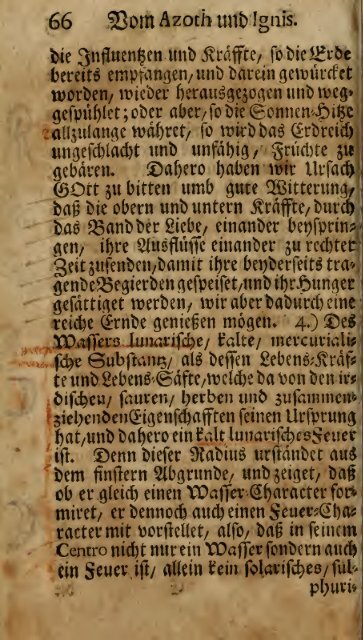 66 Vom Azoth und Ignis.
die Influentzen und Kräffte, so die Erde
bereits empfangen, und darein gewürcket
worden, wieder herausgezogen und weg-
gespühlet; oder aber, so die Sonnen-Hitze
allzulange währet, so wird das Erdreich
ungeschlacht und unfähig, Früchte zu
gebären. Dahero haben wir Ursach
GOtt zu bitten umb gute Witterung,
daß die obern und untern Kräffte, durch
das Band der Liebe, einander beysprin-
gen, ihre Ausflüsse einander zu rechter
Zeit zusenden, damit ihre beyderseits tra-
gende Begierden gespeiset, und ihr Hunger
gesättiget werden, wir aber dadurch eine
reiche Ernde genießen mögen. 4.) Des
Wassers lunarische, kalte, mercuriali-
sche Substantz, als dessen Lebens-Kräf-
te und Lebens-Säfte, welche da von den ir-
dischen, sauren, herben und zusammen-
ziehenden Eigenschafften seinen Ursprung
hat, und dahero ein kalt lunarisches Feuer
ist. Denn dieser Radius urständet aus
dem finstern Abgrunde, und zeiget, daß
ob er gleich einen Wasser-Character for-
miret, er dennoch auch einen Feuer-Cha-
racter mit vorstellet, also, daß in seinem
Centro nicht nur ein Wasser sondern auch
ein Feuer ist, allein kein solarisches, sul-
phuri-